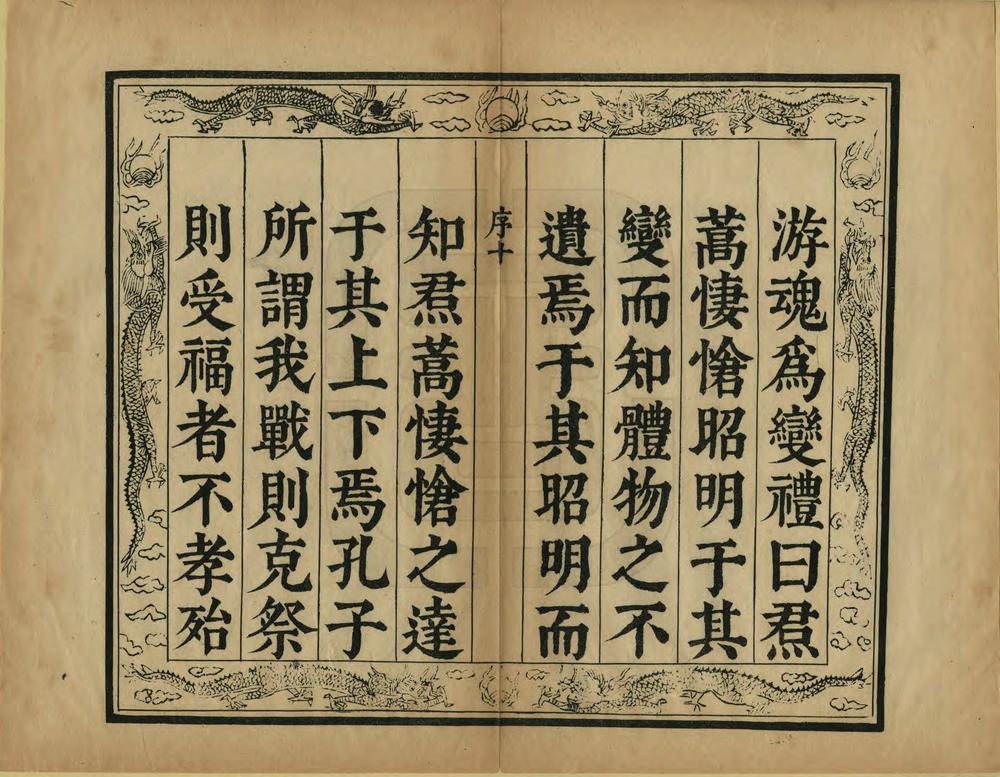 游魂爲變禮曰焄
蒿悽愴昭明于其
變而知體物之不
遺焉于其昭明而
序十
知焄蒿悽愴之達
于其上下焉孔子
所謂我戰則克祭
則受福者不孝殆